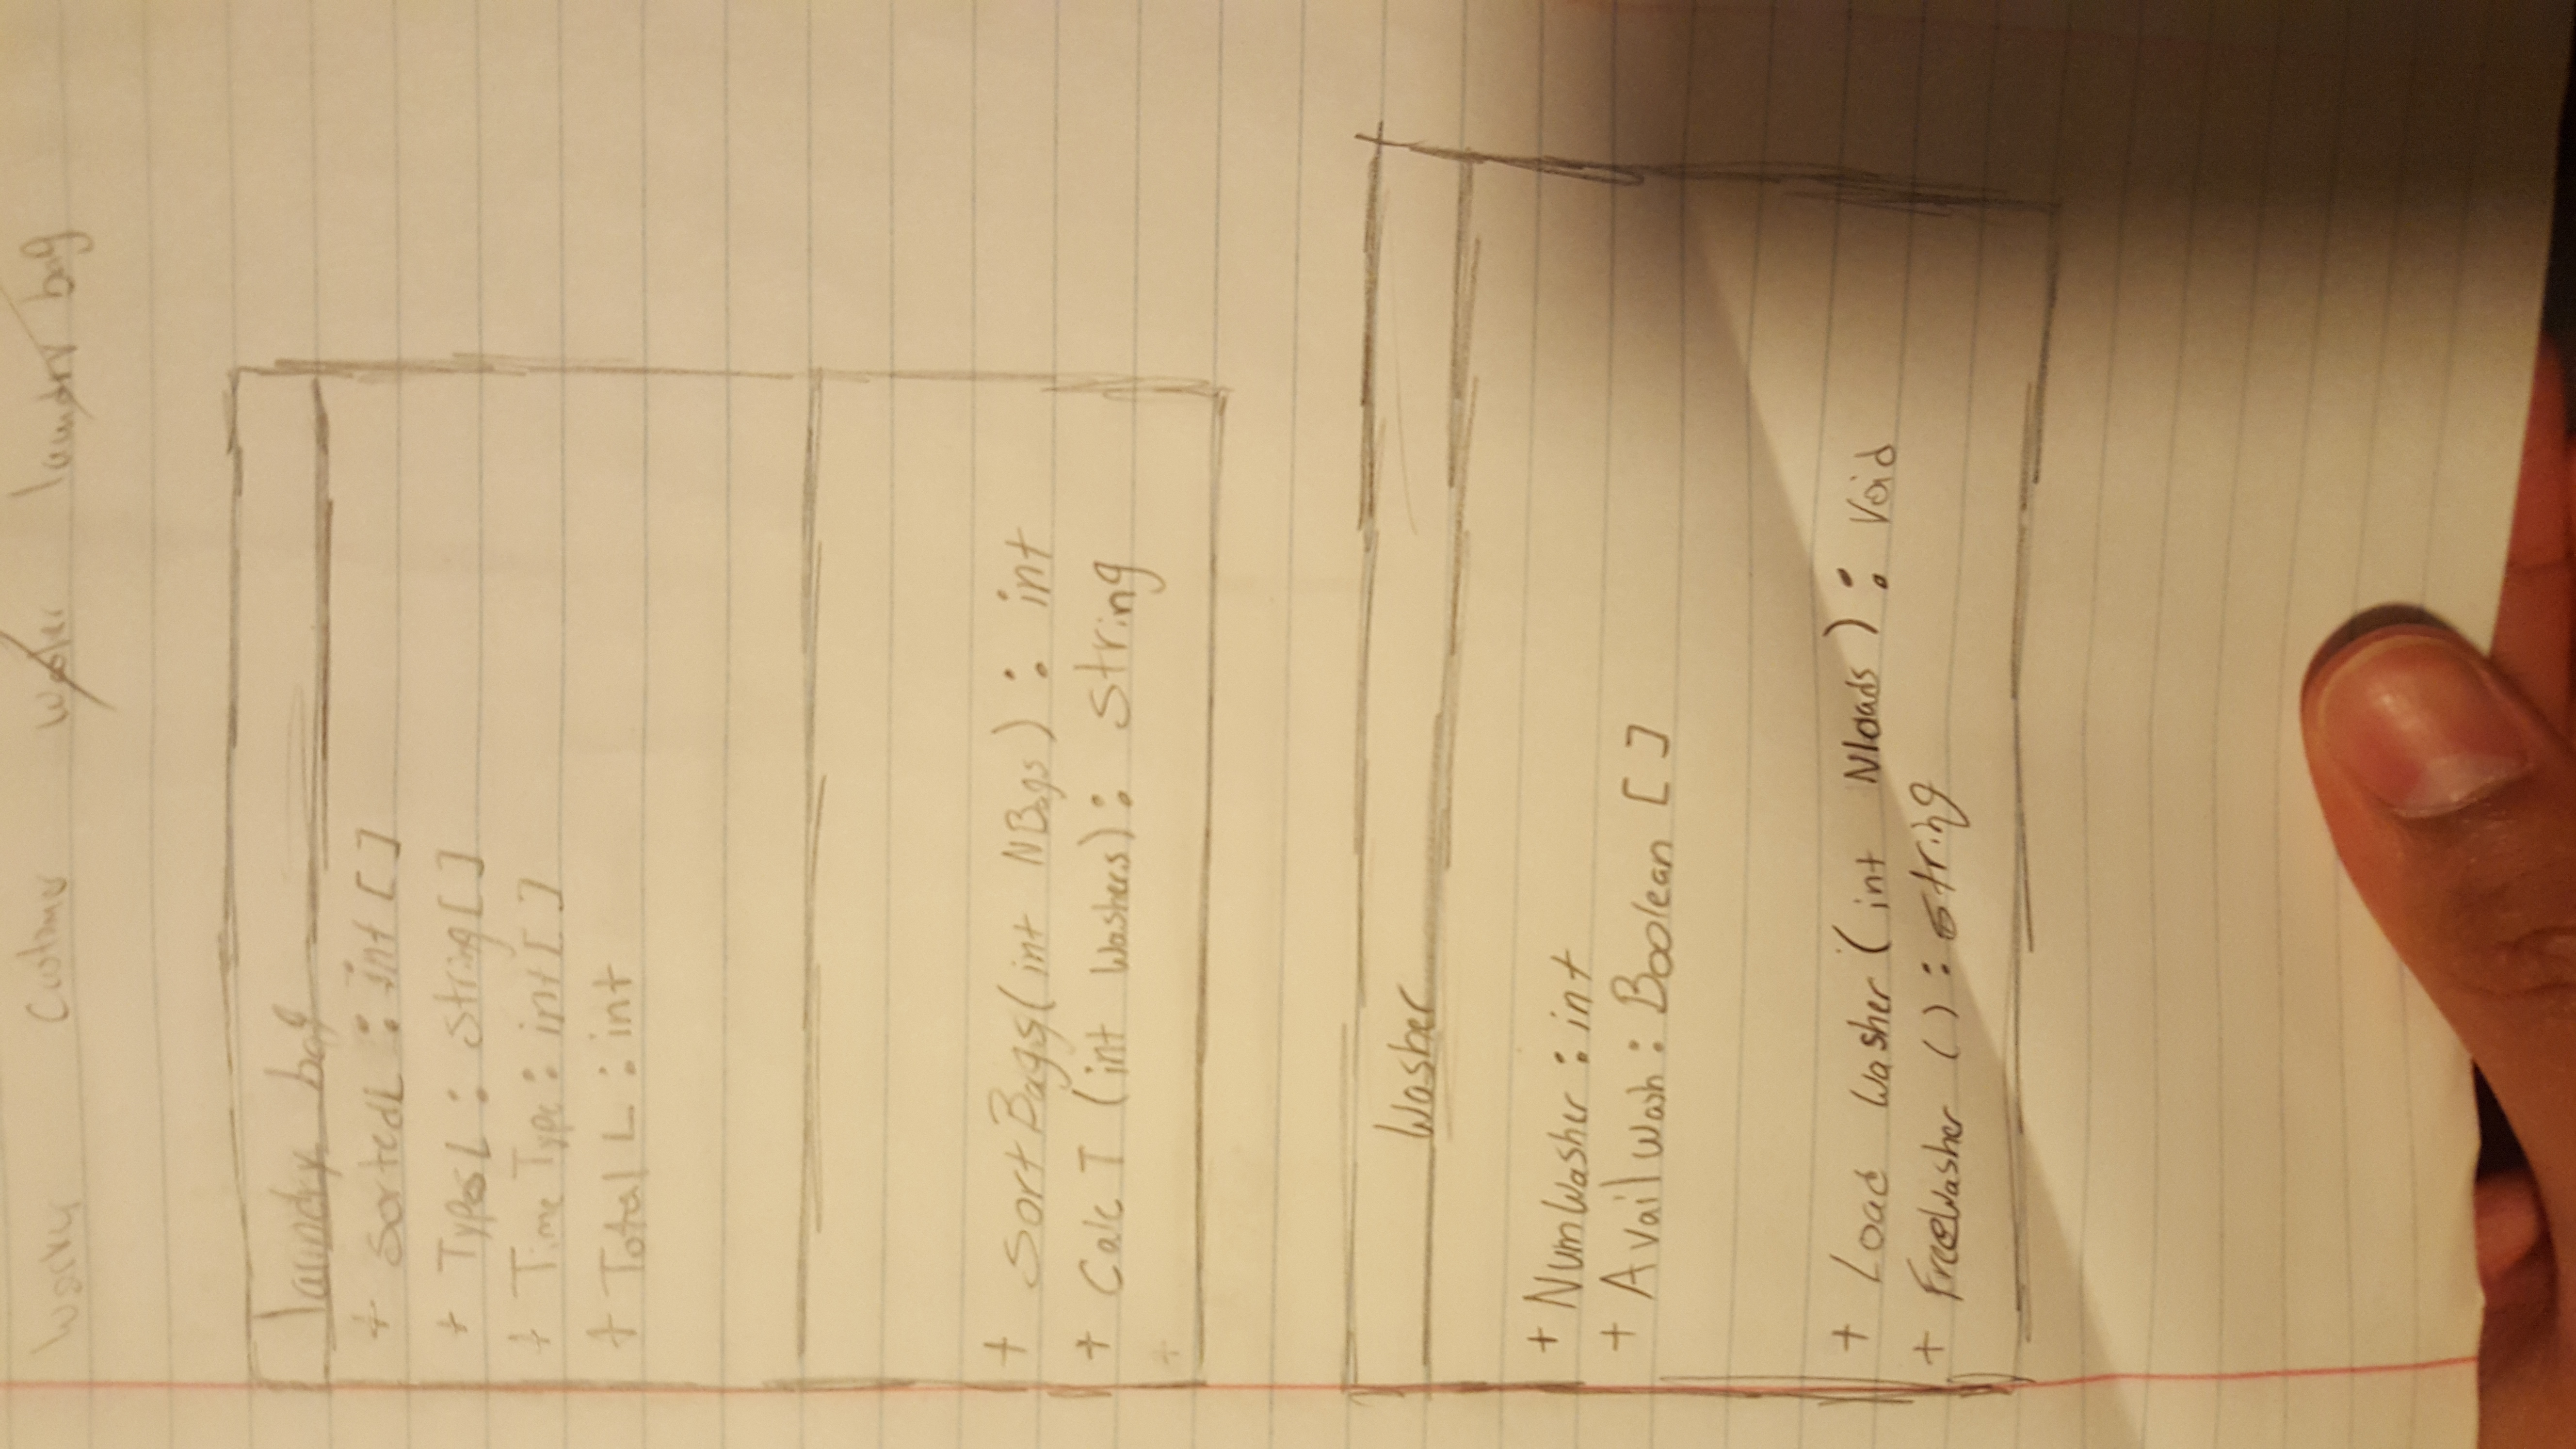 Worker Customer Washer laundry bag
laundry bag
+ SortedL : int []
+ TypesL : String[]
+ TimeType : int[]
+ Total L : int
+ SortBags(int NBags) : int
+ Calc T (int Washers) : String
+
Washer
+ NumWasher : int
+ Avail Wash : Boolean []
+ Load Washer (int Nloads) : Void
+ FreeWasher () : String